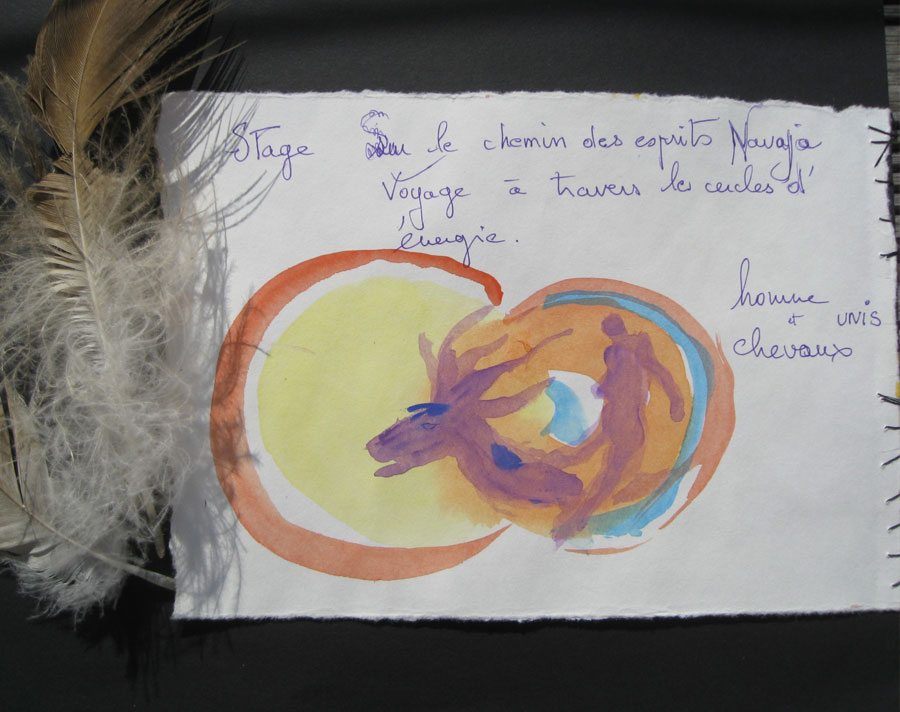 Stage Sur le chemin des esprits Navajo
Voyage à travers les cercles d'
énergie.
homme
et UNIS
chevaux